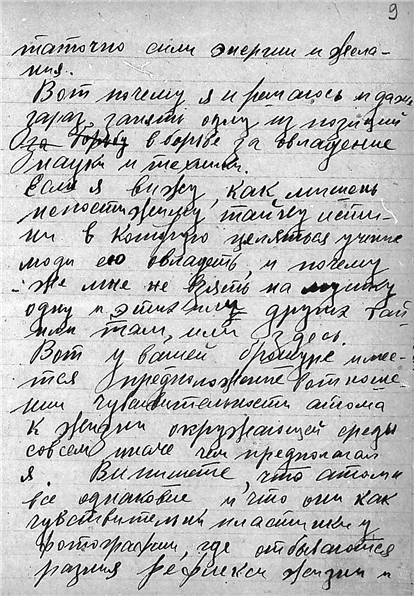 9
таточно сили энергии и жела-
ния.
Вот почему я и решаюсь и даже
зараз занять одну из позиций
за борьбу в борьбе за овладение
науки и техники.
Если я вижу, как мишень
непостижиму тайну исти-
ни в которую целяться учение
люди ею овладеть, и почему
же мне не взять на мушку
одну и этих или других тай
или там, или здесь.
Вот у вашей брошуре имее-
тся предположение вотноше-
нии чуввительности атома
к жизни окружающей среды
совсем иначе чем предполагал
я. Ви пишете, что атоми
все однаковие и что они как
чувствительни пластинки у
фотографии, где отбываются
разния рефлекси жизни и